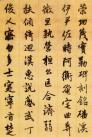 策功茂實勒碑刻銘磻溪
伊尹佐時阿衡奄宅曲阜
微旦孰營桓公匡合濟弱
扶傾綺迴漢惠說感武丁
俊乂密勿多士寔寧晉楚